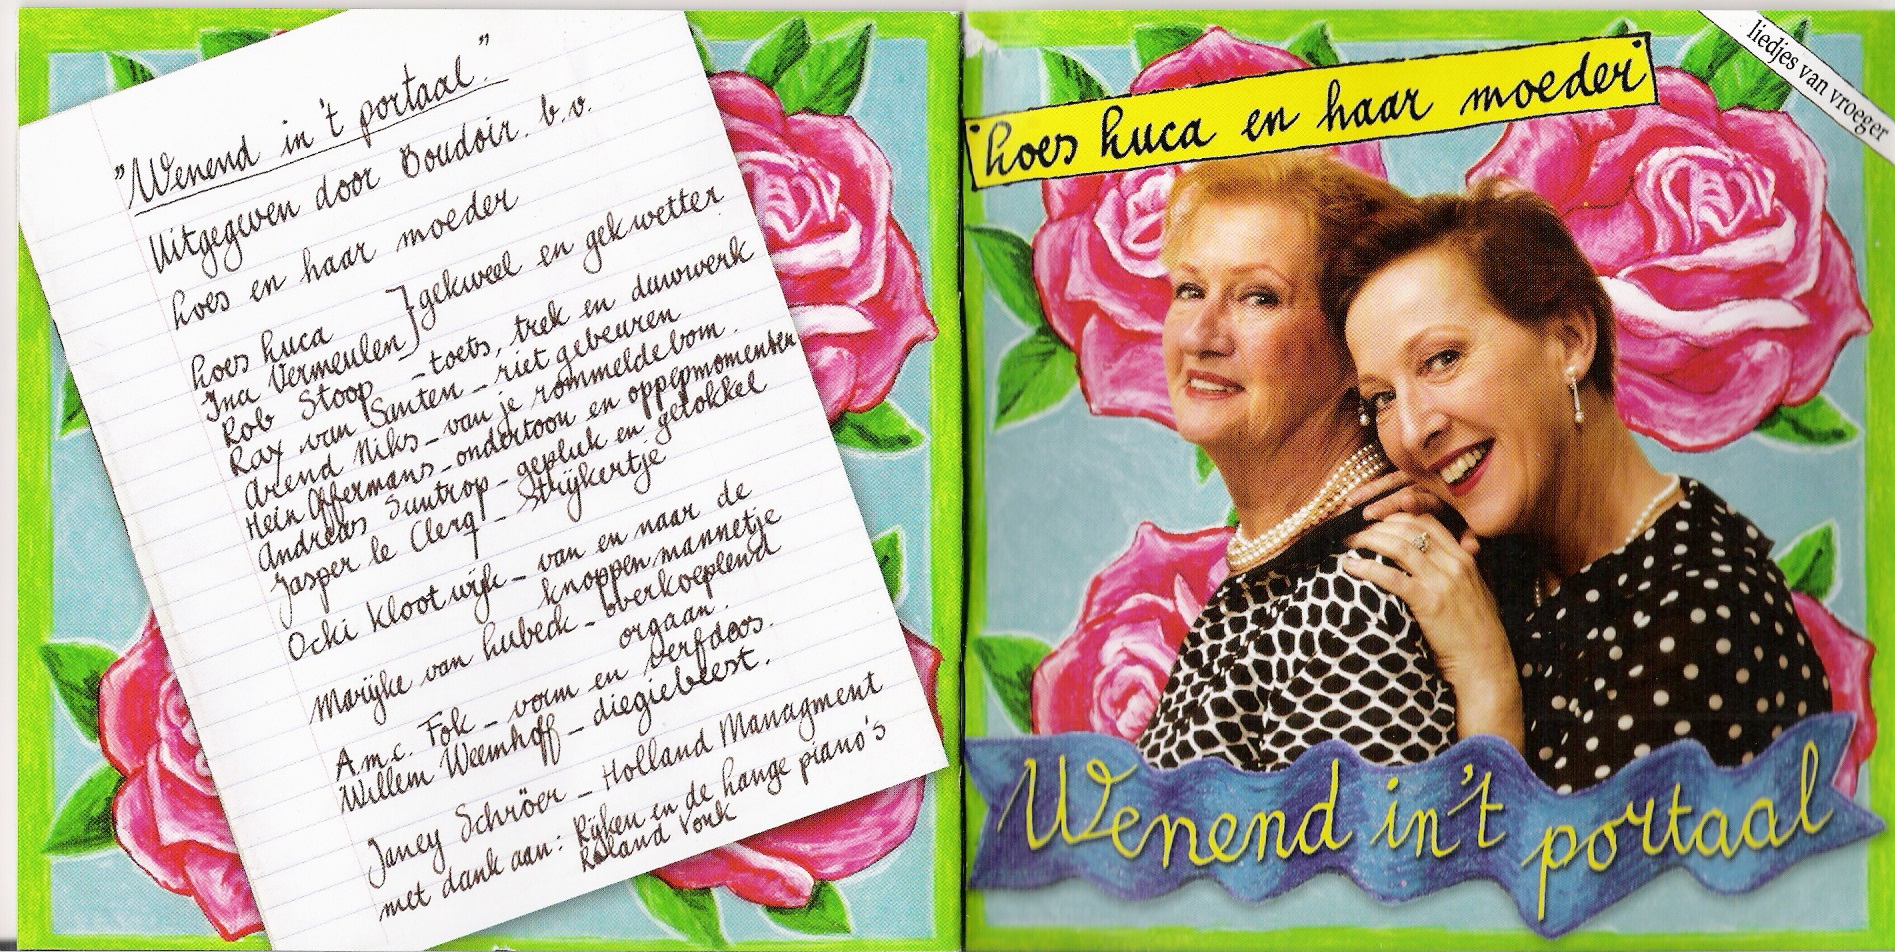 "Wenend in't portaal."
Uitgegeven door Boudoir. b.v.
Loes en haar moeder
Loes Luca
Ina Vermeulen } gekweel en gekwetter
Rob Stoop - toets, trek en duwwerk
Rax van Santen - riet gebeuren
Arend Niks - van je rommeldebom.
Hein Offermans - ondertoon en oppepmomenten
Andreas Suntrop - gepluk en getokkel
Jasper le Clerq - Strijkertje
Ocki Klootwijk - van en naar de
knoppen mannetje
Marijke van Lubeck - overkoeplend
orgaan.
A.m.c. Fok - vorm en verfdoos.
Willem Weemhoff - diegiebeest.
Janey Schröer - Holland Managment
met dank aan: Rijken en de Lange piano's
Roland Vonk
liedjes van vroeger
Loes Luca en haar moeder
Wenend in't portaal